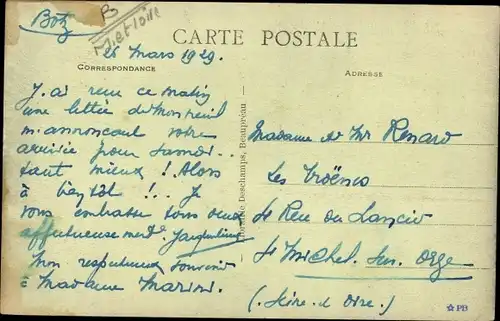 Botz
CARTE POSTALE
26 Mars 1929.
CORRESPONDANCE
ADRESSE
J'ai reçu ce matin
une lettre de Montreuil
m'annonçant votre
arrivée pour samedi..
tant mieux ! Alors
à bientôt !.. Je
vous embrasse tous deux
affectueusement.
Mon respectueux souvenir
à Madame Marini.
Librairie Deschamps, Beaupréau
Madame et Mr Renard
Les Troënes
Rue du
St Michel sur Orge
(Seine et Oise.)
PB